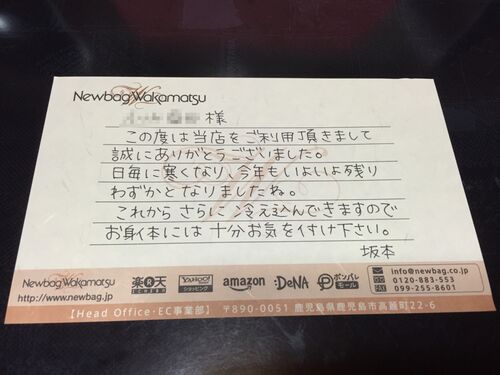 Newbag Wakamatsu
様
この度は当店をご利用頂きまして
誠にありがとうございました。
日毎に寒くなり、今年もいよいよ残り
わずかとなりましたね。
これから さらに 冷え込んできますので
お身体には 十分お気を付け下さい。
坂本
Newbag Wakamatsu
http://www.newbag.jp
楽天
ICHIBA
YAHOO!
ショッピング
amazon
:DeNA
ポンパレモール
info@newbag.co.jp
0120-883-553
FAX 099-255-8601
【Head Office・EC事業部】 〒890-0051 鹿児島県鹿児島市高麗町22-6